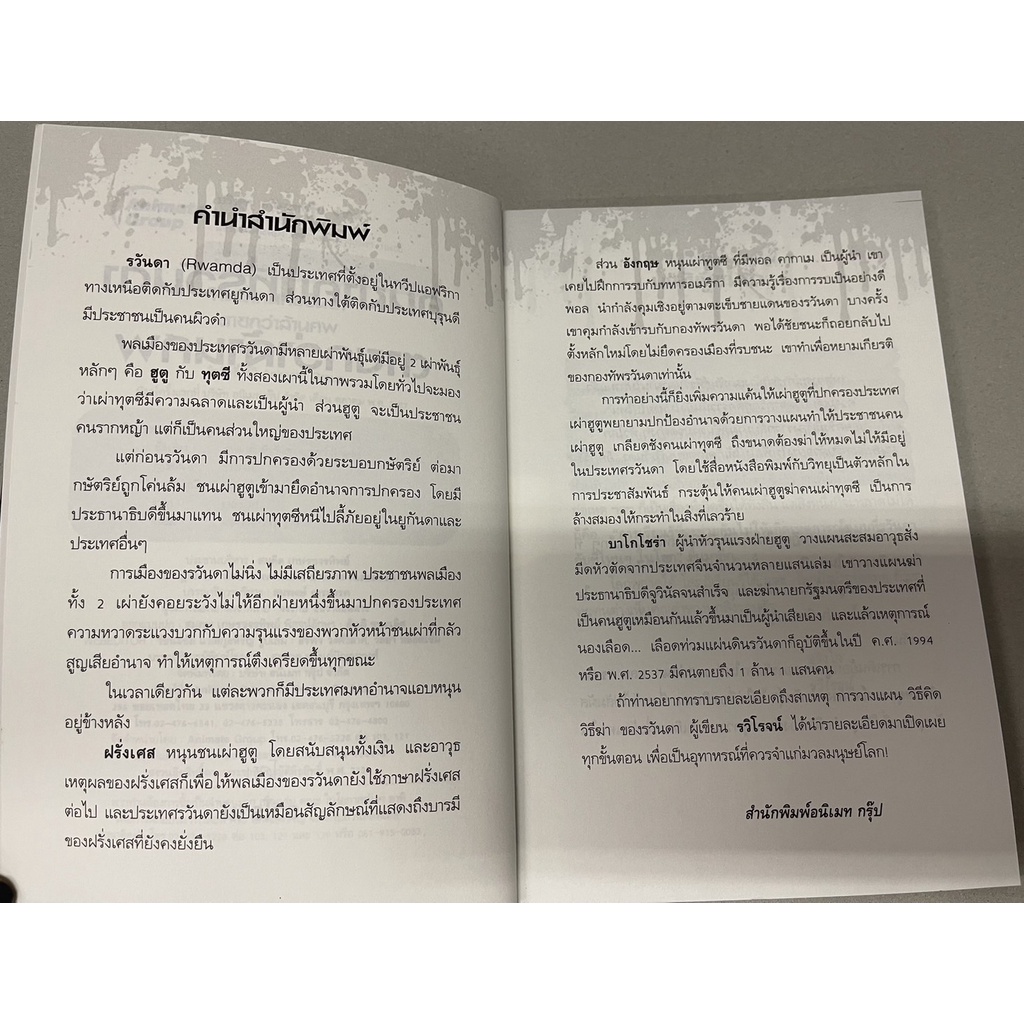 คำนำสำนักพิมพ์
รวันดา (Rwamda) เป็นประเทศที่ตั้งอยู่ในทวีปแอฟริกา
ทางเหนือติดกับประเทศยูกันดา ส่วนทางใต้ติดกับประเทศบุรุนดี
มีประชาชนเป็นคนผิวดำ
พลเมืองของประเทศรวันดามีหลายเผ่าพันธุ์แต่มีอยู่ 2 เผ่าพันธุ์
หลักๆ คือ ฮูตู กับ ทุตซี ทั้งสองเผ่านี้ในภาพรวมโดยทั่วไปจะมอง
ว่าเผ่าทุตซีมีความฉลาดและเป็นผู้นำ ส่วนฮูตู จะเป็นประชาชน
คนรากหญ้า แต่ก็เป็นคนส่วนใหญ่ของประเทศ
แต่ก่อนรวันดา มีการปกครองด้วยระบอบกษัตริย์ ต่อมา
กษัตริย์ถูกโค่นล้ม ชนเผ่าฮูตูเข้ามายึดอำนาจการปกครอง โดยมี
ประธานาธิบดีขึ้นมาแทน ชนเผ่าทุตซีหนีไปลี้ภัยอยู่ในยูกันดาและ
ประเทศอื่นๆ
การเมืองของรวันดาไม่นิ่ง ไม่มีเสถียรภาพ ประชาชนพลเมือง
ทั้ง 2 เผ่ายังคอยระวังไม่ให้อีกฝ่ายหนึ่งขึ้นมาปกครองประเทศ
ความหวาดระแวงบวกกับความรุนแรงของพวกหัวหน้าชนเผ่าที่กลัว
สูญเสียอำนาจ ทำให้เหตุการณ์ตึงเครียดขึ้นทุกขณะ
ในเวลาเดียวกัน แต่ละพวกก็มีประเทศมหาอำนาจแอบหนุน
อยู่ข้างหลัง
ฝรั่งเศส หนุนชนเผ่าฮูตู โดยสนับสนุนทั้งเงิน และอาวุธ
เหตุผลของฝรั่งเศสก็เพื่อให้พลเมืองของรวันดายังใช้ภาษาฝรั่งเศส
ต่อไป และประเทศรวันดายังเป็นเหมือนสัญลักษณ์ที่แสดงถึงบารมี
ของฝรั่งเศสที่ยังคงยั่งยืน
ส่วน อังกฤษ หนุนเผ่าทูตซี ที่มีพอล คากาเม เป็นผู้นำ เขา
เคยไปฝึกการรบกับทหารอเมริกา มีความรู้เรื่องการรบเป็นอย่างดี
พอล นำกำลังคุมเชิงอยู่ตามตะเข็บชายแดนของรวันดา บางครั้ง
เขาคุมกำลังเข้ารบกับกองทัพรวันดา พอได้ชัยชนะก็ถอยกลับไป
ตั้งหลักใหม่โดยไม่ยึดครองเมืองที่รบชนะ เขาทำเพื่อหยามเกียรติ
ของกองทัพรวันดาเท่านั้น
การทำอย่างนี้ก็ยิ่งเพิ่มความแค้นให้เผ่าฮูตูที่ปกครองประเทศ
เผ่าฮูตูพยายามปกป้องอำนาจด้วยการวางแผนทำให้ประชาชนคน
เผ่าฮูตู เกลียดชังคนเผ่าทุตซี ถึงขนาดต้องฆ่าให้หมดไม่ให้มีอยู่
ในประเทศรวันดา โดยใช้สื่อหนังสือพิมพ์กับวิทยุเป็นตัวหลักใน
การประชาสัมพันธ์ กระตุ้นให้คนเผ่าฮูตูฆ่าคนเผ่าทุตซี เป็นการ
ล้างสมองให้กระทำในสิ่งที่เลวร้าย
บาโกโซร่า ผู้นำหัวรุนแรงฝ่ายฮูตู วางแผนสะสมอาวุธสั่ง
มีดหัวตัดจากประเทศจีนจำนวนหลายแสนเล่ม เขาวางแผนฆ่า
ประธานาธิบดีจูวินัลจนสำเร็จ และฆ่านายกรัฐมนตรีของประเทศที่
เป็นคนฮูตูเหมือนกันแล้วขึ้นมาเป็นผู้นำเสียเอง และแล้วเหตุการณ์
นองเลือด... เลือดท่วมแผ่นดินรวันดาก็อุบัติขึ้นในปี ค.ศ. 1994
หรือ พ.ศ. 2537 มีคนตายถึง 1 ล้าน 1 แสนคน
ถ้าท่านอยากทราบรายละเอียดถึงสาเหตุ การวางแผน วิธีคิด
วิธีฆ่า ของรวันดา ผู้เขียน รวิโรจน์ ได้นำรายละเอียดมาเปิดเผย
ทุกขั้นตอน เพื่อเป็นอุทาหรณ์ที่ควรจำแก่มวลมนุษย์โลก!
สำนักพิมพ์อนิเมท กรุ๊ป